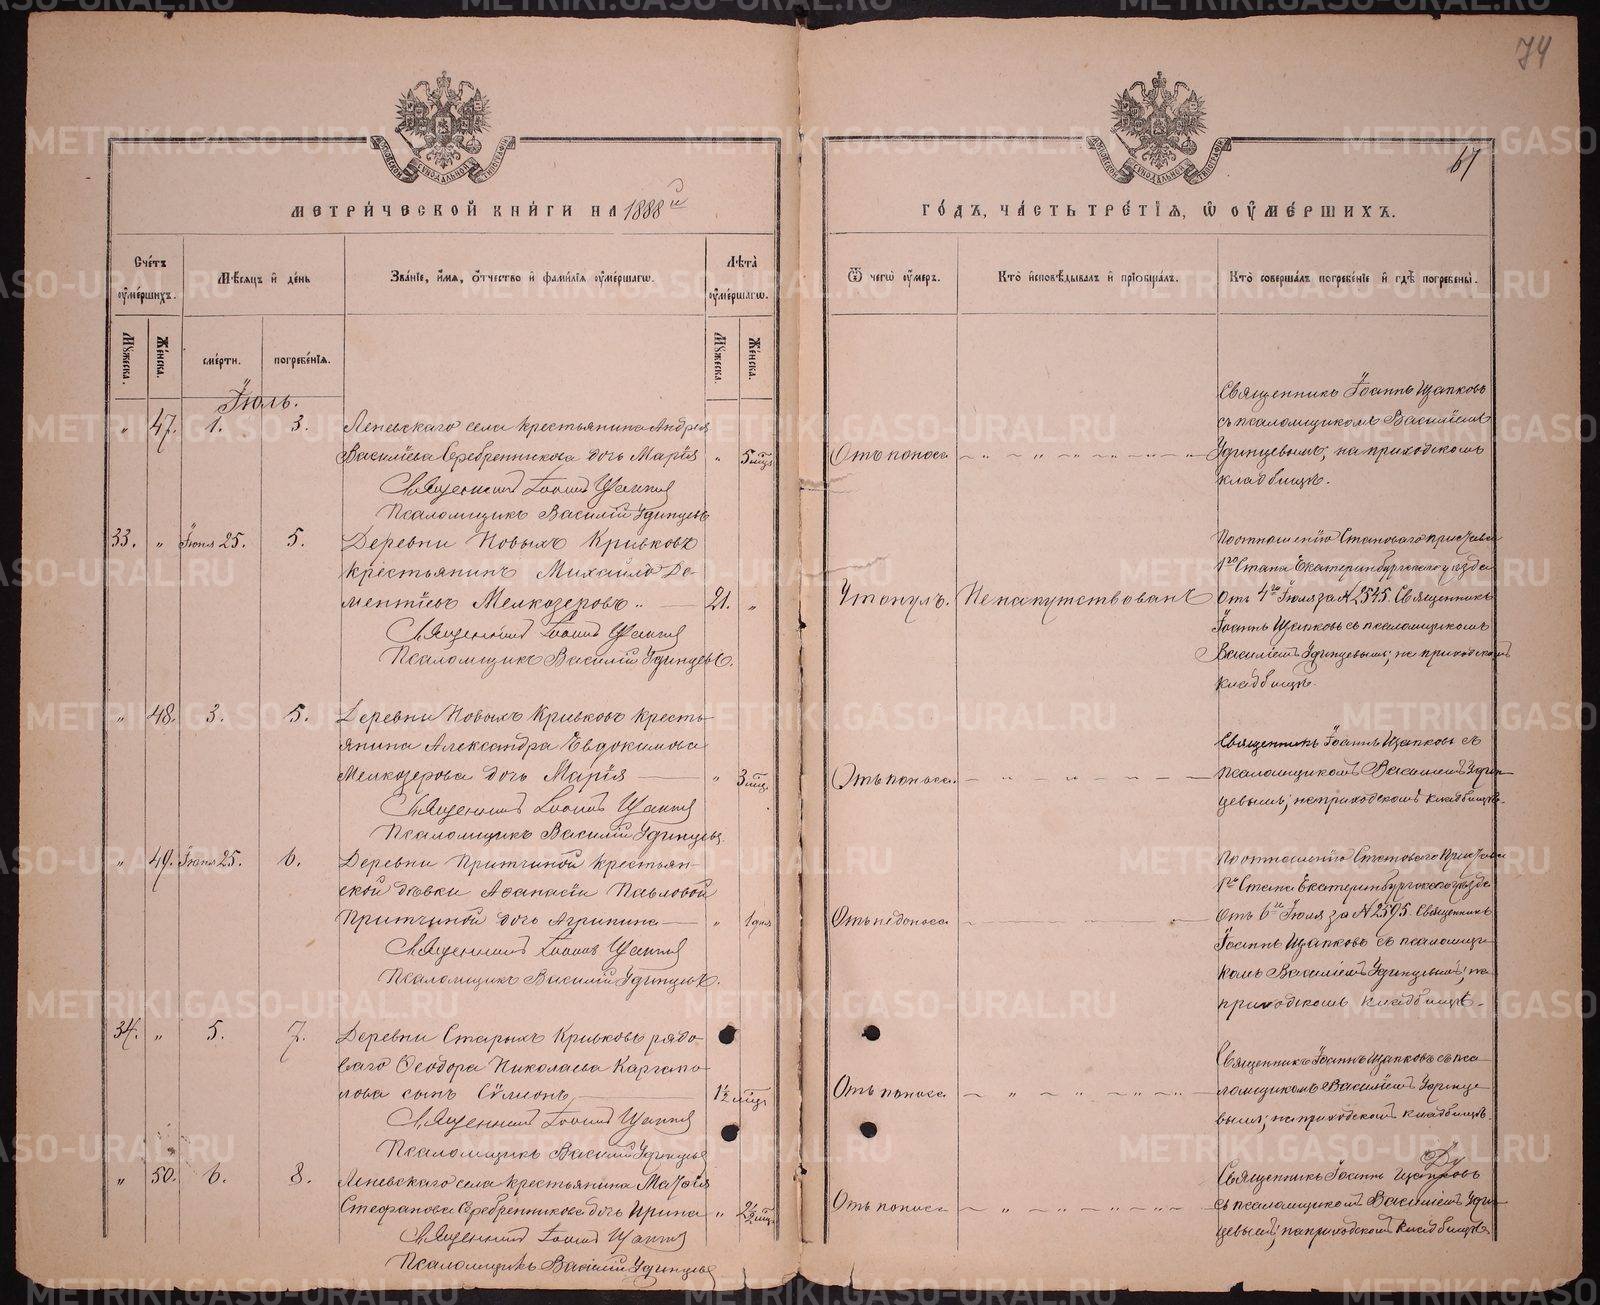 74
67
МЕТРИ́ЧЕСКОЙ КНИ́ГИ НА 1888й
ГО́ДЪ, ЧА́СТЬ ТРЕ́ТІѦ, Ѡ҆ ОУ҆МЕ́РШИХЪ.
Сче́тъ оумершихъ.
Мѣ́сяцъ и де́нь
Зва́ніе, и́мя, о́тчество и фами́лія оуме́ршагѡ.
Лѣта̀ оуме́ршагѡ.
Ѿ чегѡ̀ оу́меръ.
Кто̀ исповѣ́дывалъ и пріобща́лъ.
Кто̀ соверша́лъ погребе́ніе и гдѣ̀ погребены̀.
Мꙋжеска.
Же́нска.
сме́рти.
погребе́нія.
Мꙋжеска.
Же́нска.
Іюль.
" 47. 1. 3. Леневскаго села крестьянина Андрея
Василіева Серебренникова дочь Марія " 5 мцъ
Священникъ Іоаннъ Щапковъ
Псаломщикъ Василій Удинцевъ
Отъ поноса
Священникъ Іоаннъ Щапковъ
съ псаломщикомъ Василіемъ
Удинцевымъ; на приходскомъ
кладбищѣ.
33. " Іюня 25. 5. Деревни Новыхъ Кривковъ
крестьянинъ Михаилъ До-
ментіевъ Мелкозеровъ 21. "
Священникъ Іоаннъ Щапковъ
Псаломщикъ Василій Удинцевъ.
Утонулъ. Не напутствованъ
По отношенію Становаго пристава
1го Стана Екатеринбургскаго уѣзда
отъ 4го Іюля за № 2545. Священникъ
Іоаннъ Щапковъ съ псаломщикомъ
Василіемъ Удинцевымъ; на приходскомъ
кладбищѣ.
" 48. 3. 5. Деревни Новыхъ Кривковъ кресть-
янина Александра Евдокимова
Мелкозерова дочь Марія " 3 мцъ.
Священникъ Іоаннъ Щапковъ
Псаломщикъ Василій Удинцевъ.
Отъ поноса.
Священникъ Іоаннъ Щапковъ съ
псаломщикомъ Василіемъ Удин-
цевымъ; на приходскомъ кладбищѣ.
" 49. Іюня 25. 6. Деревни Притчиной крестьян-
ской дѣвки Аѳанасіи Павловой
Притчиной дочь Агрипина " 1 дня
Священникъ Іоаннъ Щапковъ
Псаломщикъ Василій Удинцевъ.
Отъ недоноса
По отношенію Становаго Пристава
1го Стана Екатеринбургскаго уѣзда
отъ 6го Іюля за № 2595. Священникъ
Іоаннъ Щапковъ съ псаломщи-
комъ Василіемъ Удинцевымъ; на
приходскомъ кладбищѣ.
34. " 5. 7. Деревни Старыхъ Кривковъ рядо-
ваго Ѳеодора Николаева Каргапо-
лова сынъ Сѵмеонъ 1½ мцъ
Священникъ Іоаннъ Щапковъ
Псаломщикъ Василій Удинцевъ
Отъ поноса
Священникъ Іоаннъ Щапковъ съ пса-
ломщикомъ Василіемъ Удинце-
вымъ; на приходскомъ кладбищѣ.
" 50. 6. 8. Леневскаго села крестьянина Матѳія
Стефанова Серебренникова дочь Ирина " 2½ мцъ
Священникъ Іоаннъ Щапковъ
Псаломщикъ Василій Удинцевъ
Отъ поноса
Священникъ Іоаннъ Щапковъ
съ псаломщикомъ Василіемъ Удин-
цевымъ; на приходскомъ кладбищѣ.
METRIKI.GASO-URAL.RU